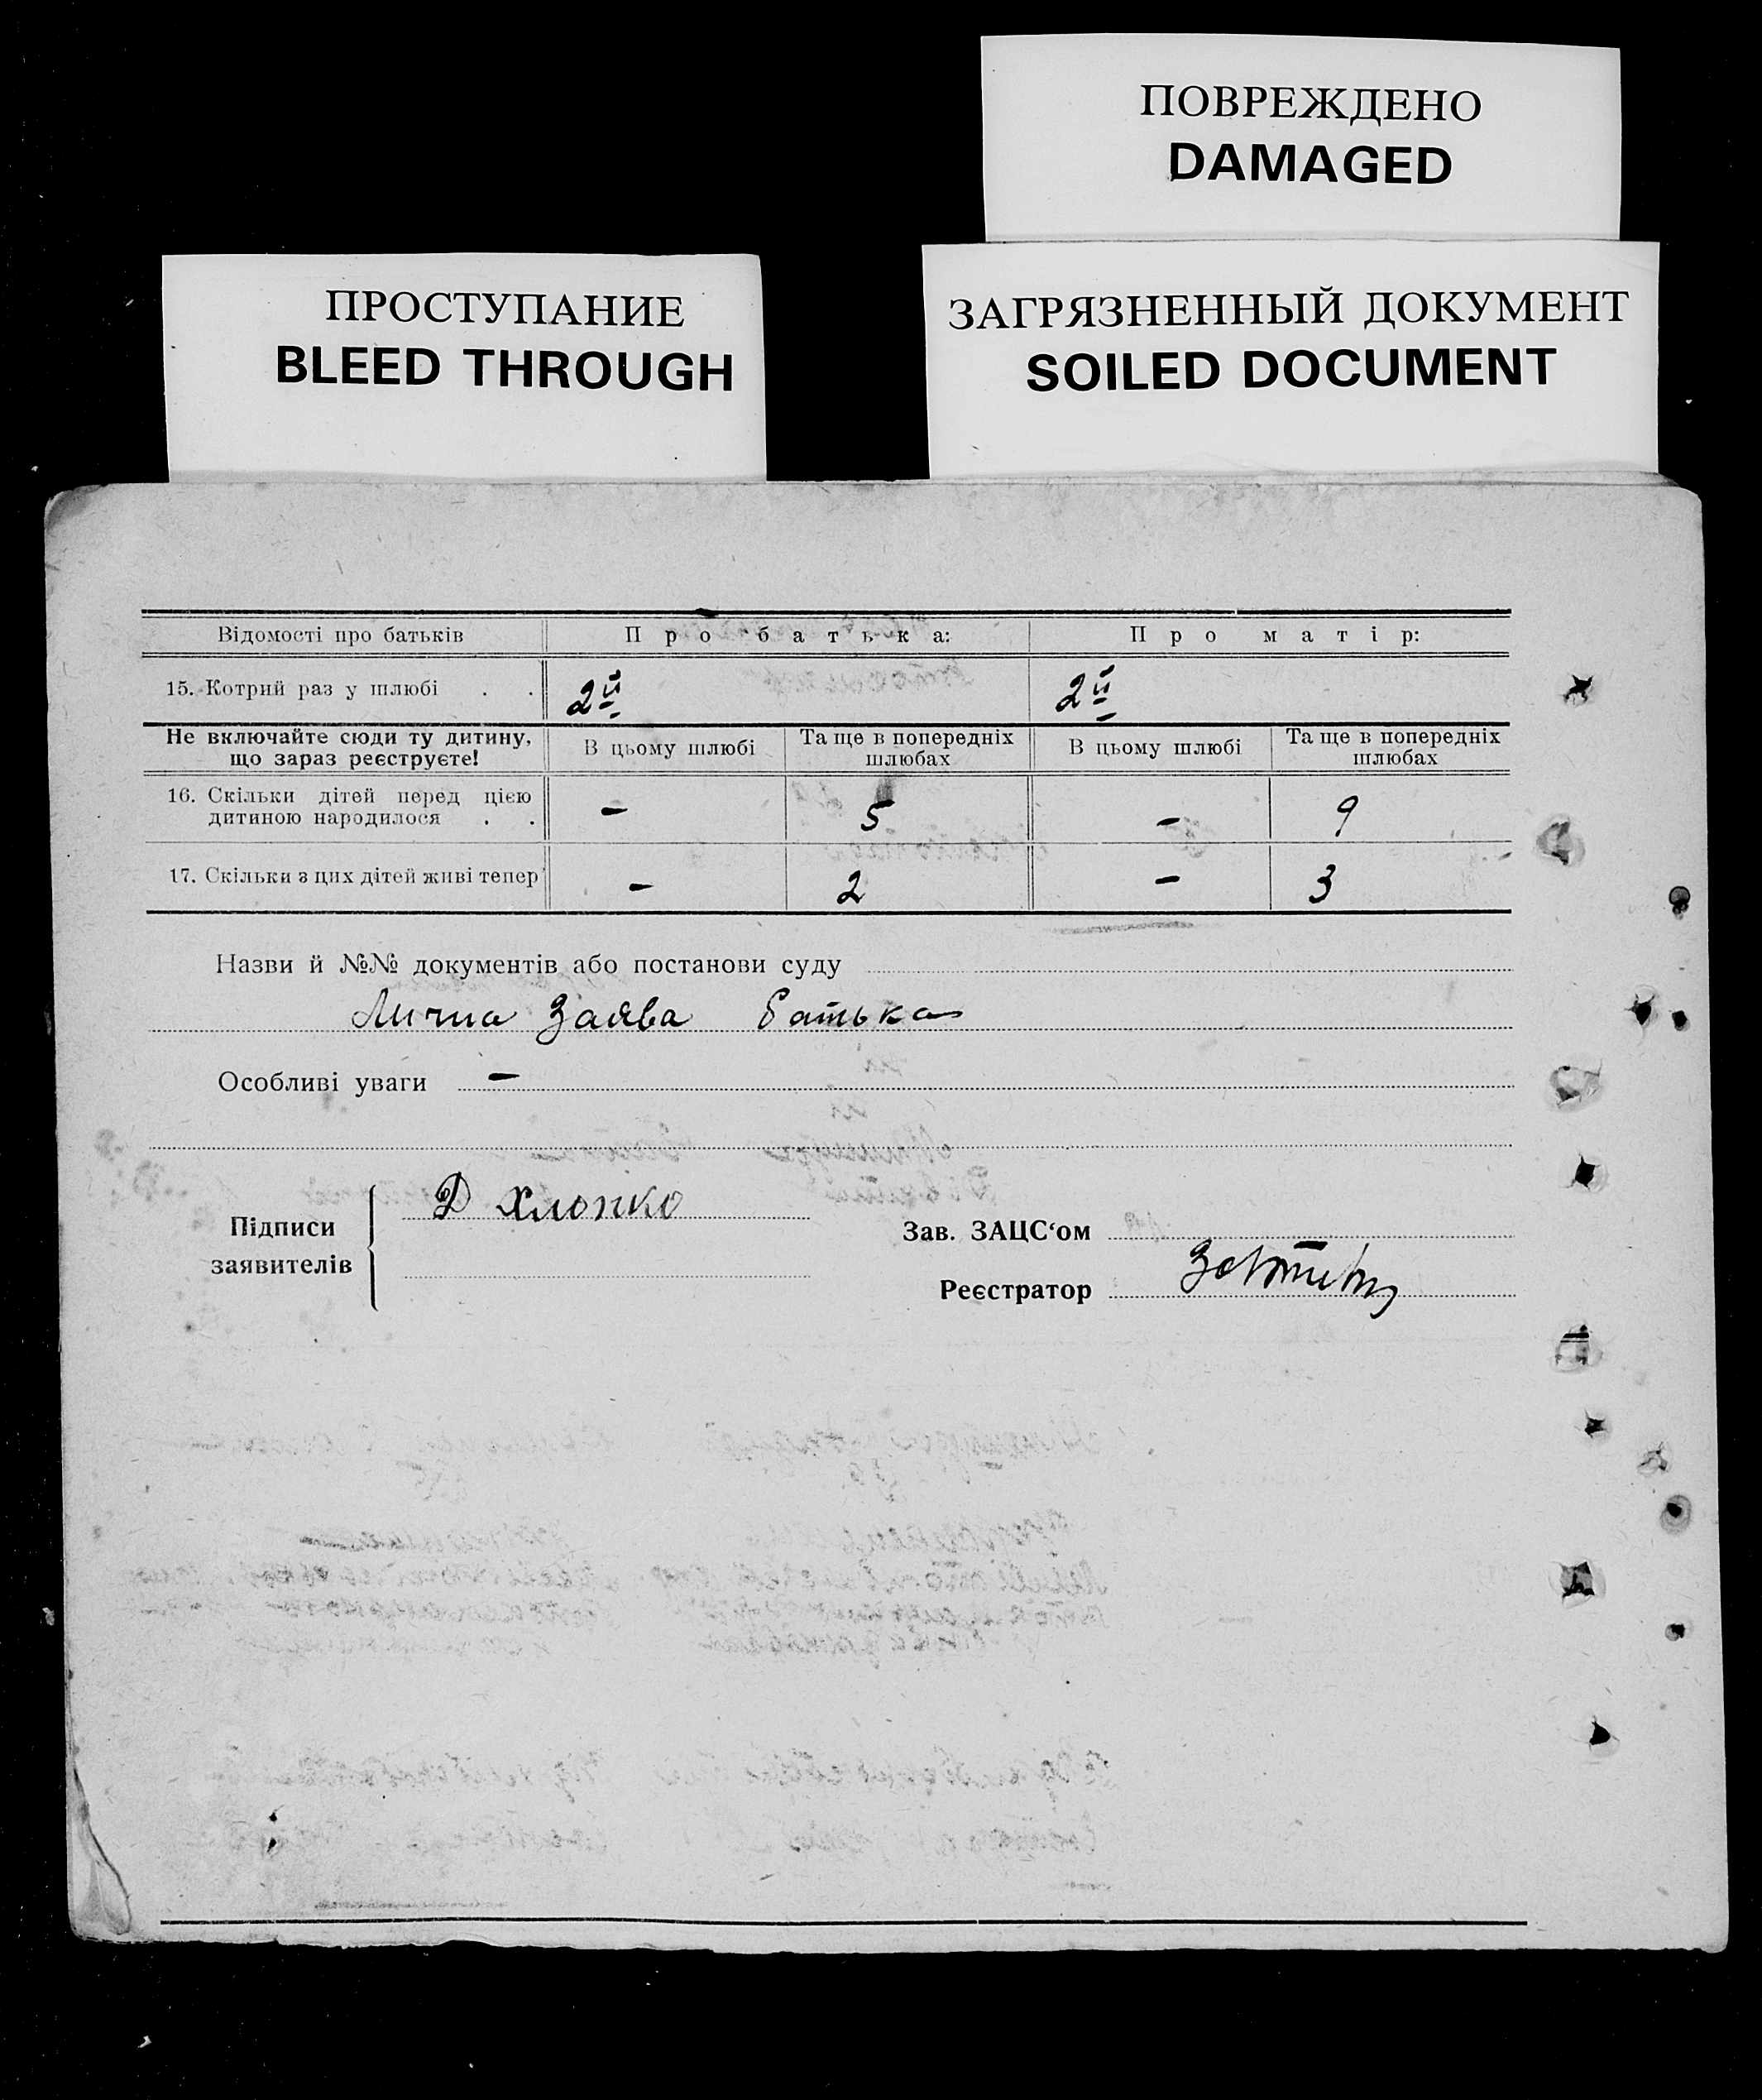 ПОВРЕЖДЕНО
DAMAGED
ПРОСТУПАНИЕ
BLEED THROUGH
ЗАГРЯЗНЕННЫЙ ДОКУМЕНТ
SOILED DOCUMENT
Відомості про батьків Про батька: Про матір:
15. Котрий раз у шлюбі . . 2й 2й
Не включайте сюди ту дитину, що зараз реєструєте! В цьому шлюбі Та ще в попередніх шлюбах В цьому шлюбі Та ще в попередніх шлюбах
16. Скільки дітей перед цією
дитиною народилося . . – 5 – 9
17. Скільки з цих дітей живі тепер – 2 – 3
Назви й №№ документів або постанови суду
Лична Заява батька
Особливі уваги –
Підписи
заявителів
Д Хлопко
Зав. ЗАЦС‘ом
Реєстратор